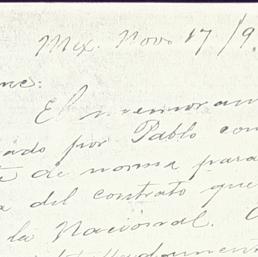 Mex. Nov. 17/9
me:
El memoran
ado por Pablo con
de norma para
a del contrato que
la Nacional.